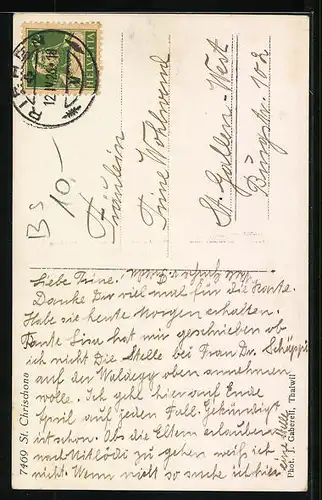 RIEHEN
12.IV.28.18
HELVETIA
BS
10.—
Fräulein
Trine Wohlwend
St. Gallen-West
Bürgstr. 102
Liebe Trine!
Danke Dir viel mal für die Karte.
Habe sie heute Morgen erhalten.
Tante Lina hat mir geschrieben ob
ich nicht die Stelle bei Frau Dr. Schüppi
auf der Waldegg oben annehmen
wolle. Ich geh hier auf Ende
April auf jeden Fall. Gekündigt
ist schon. Ob die Eltern erlauben
nach Mitlödi zu gehen weiss ich
nicht. Wenn nicht so suche ich hier
eine Stelle
7469 St. Chrischona
Phot. J. Gaberell, Thalwil